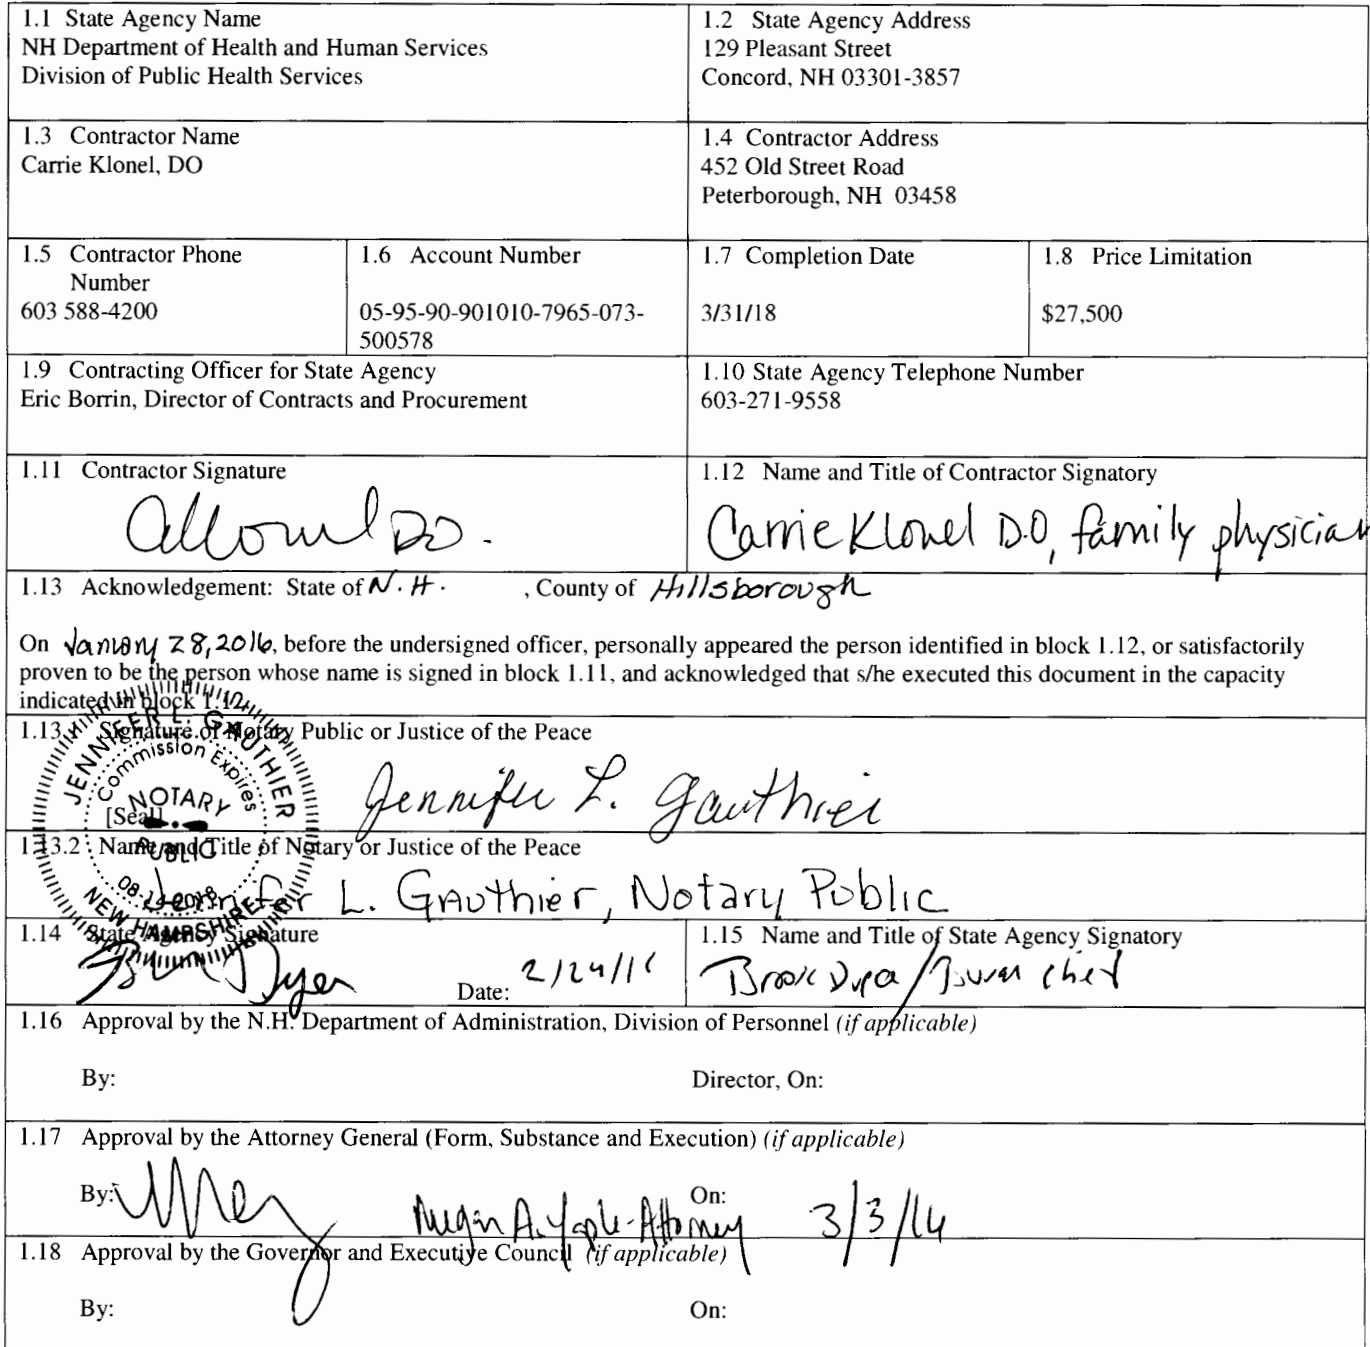 1.1 State Agency Name
NH Department of Health and Human Services
Division of Public Health Services
1.2 State Agency Address
129 Pleasant Street
Concord, NH 03301-3857
1.3 Contractor Name
Carrie Klonel, DO
1.4 Contractor Address
452 Old Street Road
Peterborough, NH 03458
1.5 Contractor Phone
Number
603 588-4200
1.6 Account Number
05-95-90-901010-7965-073-
500578
1.7 Completion Date
3/31/18
1.8 Price Limitation
$27,500
1.9 Contracting Officer for State Agency
Eric Borrin, Director of Contracts and Procurement
1.10 State Agency Telephone Number
603-271-9558
1.11 Contractor Signature
DO.
1.12 Name and Title of Contractor Signatory
Carrie Klonel D.O, family physician
1.13 Acknowledgement: State of N.H. , County of Hillsborough
On January 28, 2016, before the undersigned officer, personally appeared the person identified in block 1.12, or satisfactorily
proven to be the person whose name is signed in block 1.11, and acknowledged that s/he executed this document in the capacity
indicated in block 1.12.
1.13.1 Signature of Notary Public or Justice of the Peace
Jennifer L. Gauthier
[Seal]
JENNIFER L. GAUTHIER
Commission Expires
NOTARY
PUBLIC
NEW HAMPSHIRE
1.13.2 Name and Title of Notary or Justice of the Peace
Jennifer L. Gauthier, Notary Public
1.14 State Agency Signature
Dyer
Date: 2/24/16
1.15 Name and Title of State Agency Signatory
Brook Dupee / Bureau Chief
1.16 Approval by the N.H. Department of Administration, Division of Personnel (if applicable)
By: Director, On:
1.17 Approval by the Attorney General (Form, Substance and Execution) (if applicable)
By: Megan A. Yaple-Attorney On: 3/3/16
1.18 Approval by the Governor and Executive Council (if applicable)
By: On: